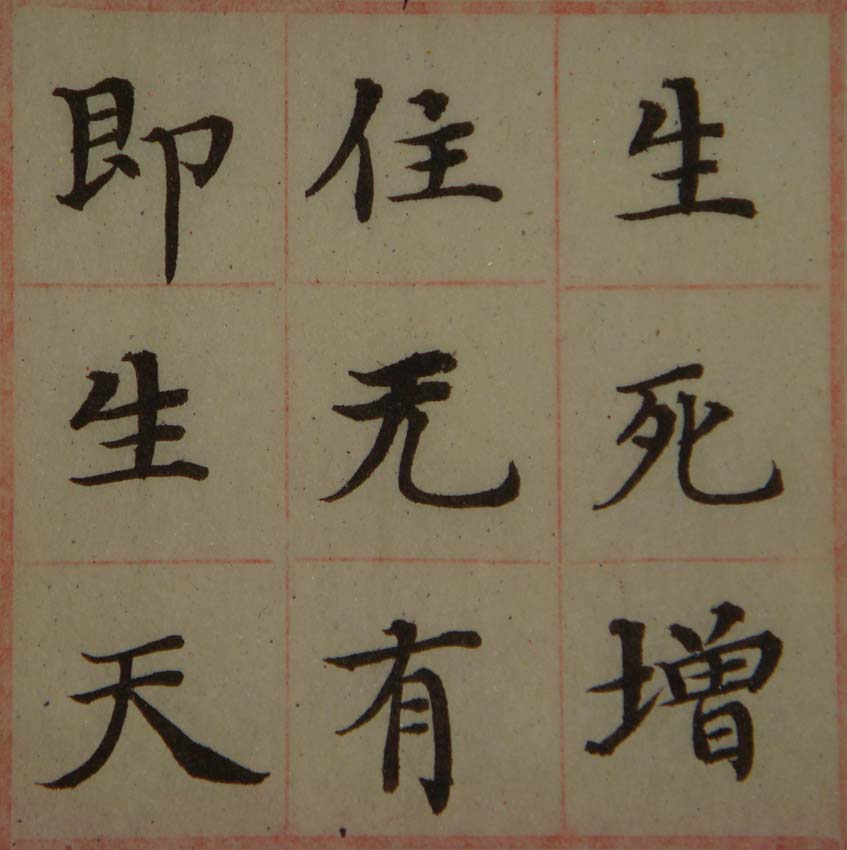 生死增
住无有
即生天